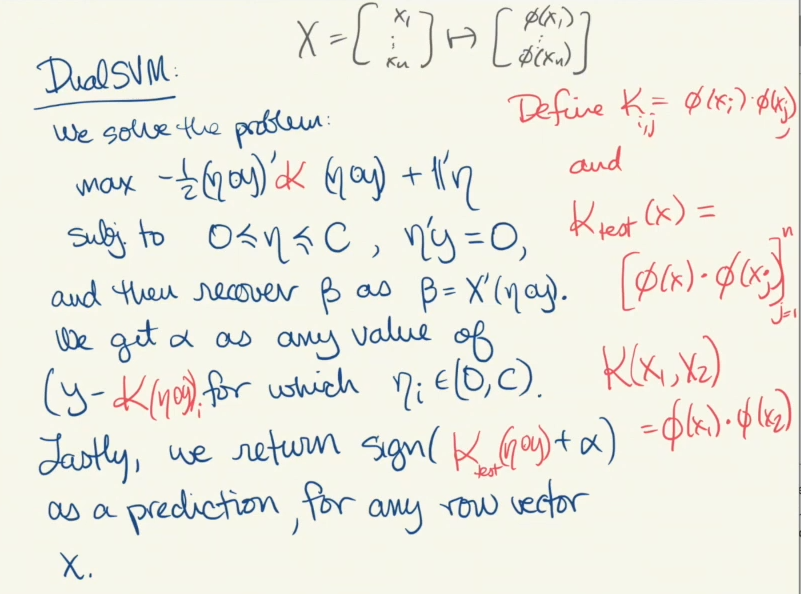 X = [ x₁ ⋮ xₙ ] ↦ [ ϕ(x₁) ⋮ ϕ(xₙ) ]
Dual SVM:
We solve the problem:
max -½(η∘y)'K (η∘y) + 𝟙'η
subj. to 0≤η≤C, η'y=0,
and then recover β as β=X'(η∘y).
We get α as any value of
(y-K(η∘y))ᵢ for which ηᵢ∈(0,C).
Lastly, we return sign( K_test(η∘y)+α)
as a prediction, for any row vector
X.
Define K_{i,j} = ϕ(xᵢ)·ϕ(xⱼ)
and
K_test(x) =
[ϕ(x)·ϕ(xⱼ)]ⁿ_{j=1}
K(x₁,x₂)
=ϕ(x₁)·ϕ(x₂)